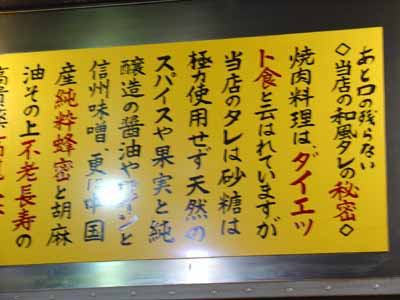 あと口の残らない
◇当店の和風タレの秘密◇
焼肉料理は、ダイエッ
ト食と云はれていますが
当店のタレは砂糖は
極力使用せず天然の
スパイスや果実と純
醸造の醤油やワインと
信州味噌、更に中国
産純粋蜂蜜と胡麻
油その上不老長寿の
高貴薬